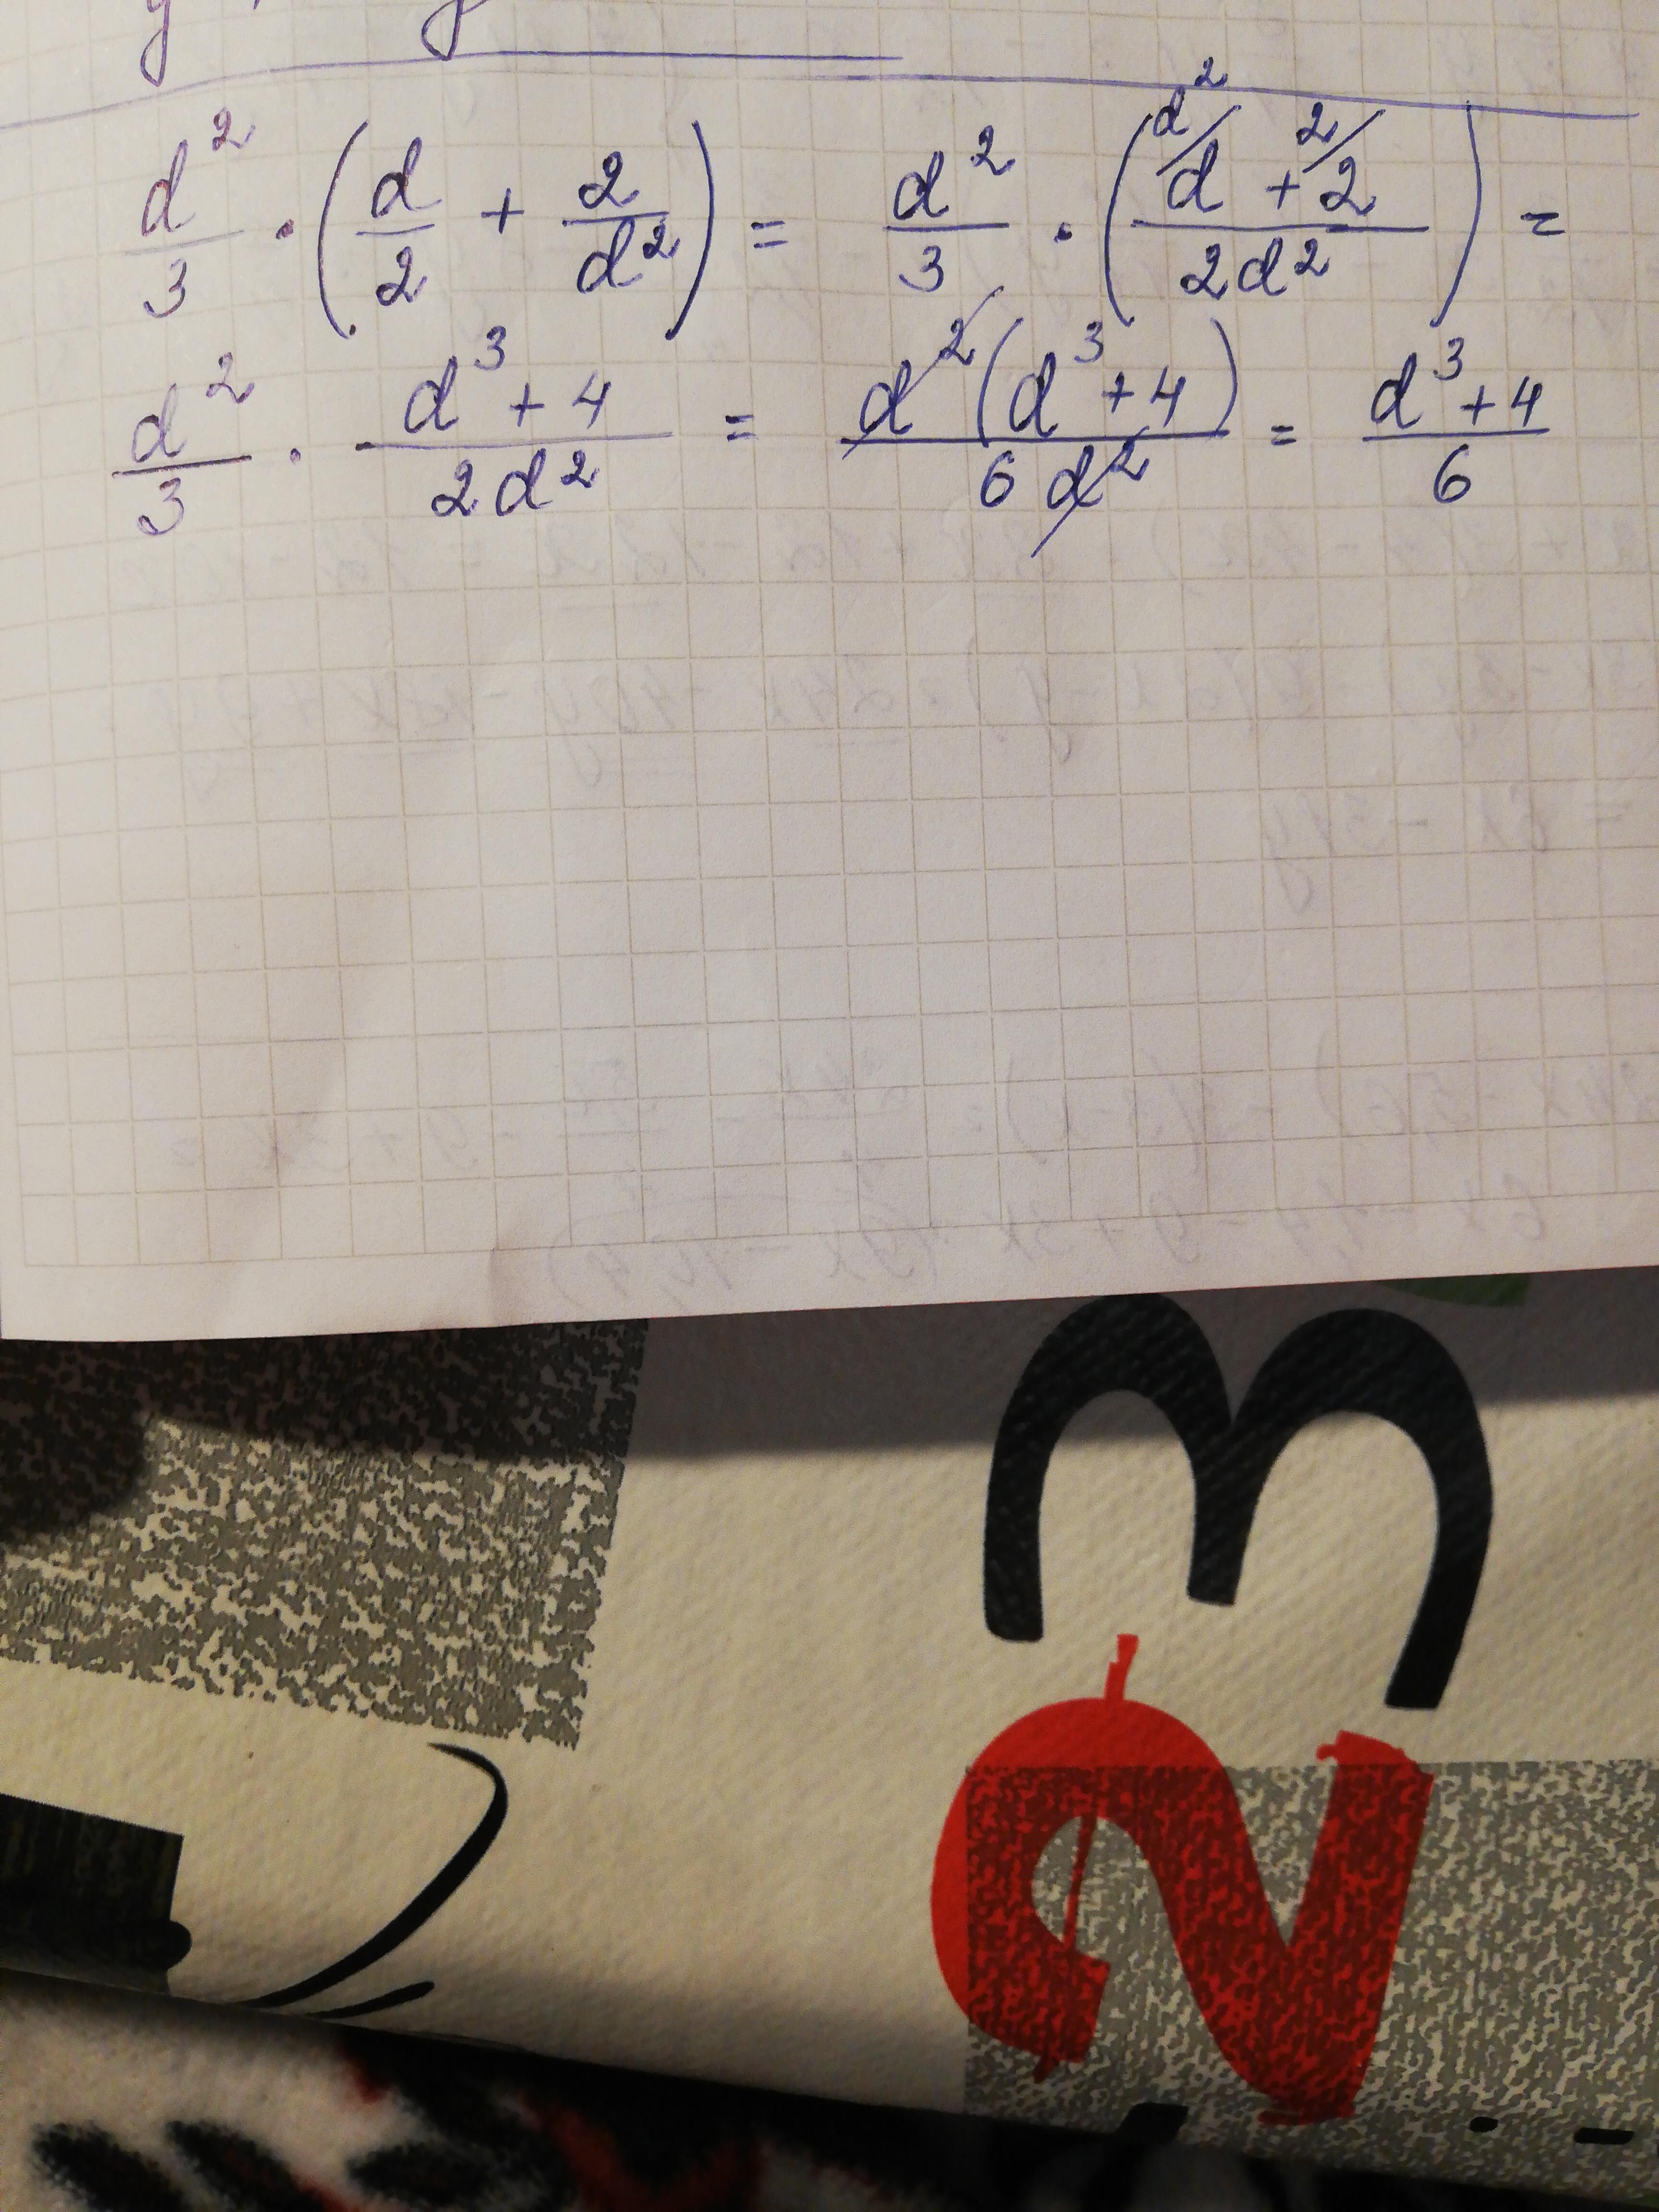 d²/3 · (d/2 + 2/d²) = d²/3 · ((d^{d²/} + 2^{2/})/(2d²)) =
d²/3 · (d³ + 4)/(2d²) = d²(d³ + 4)/(6d²) = (d³ + 4)/6
3
2